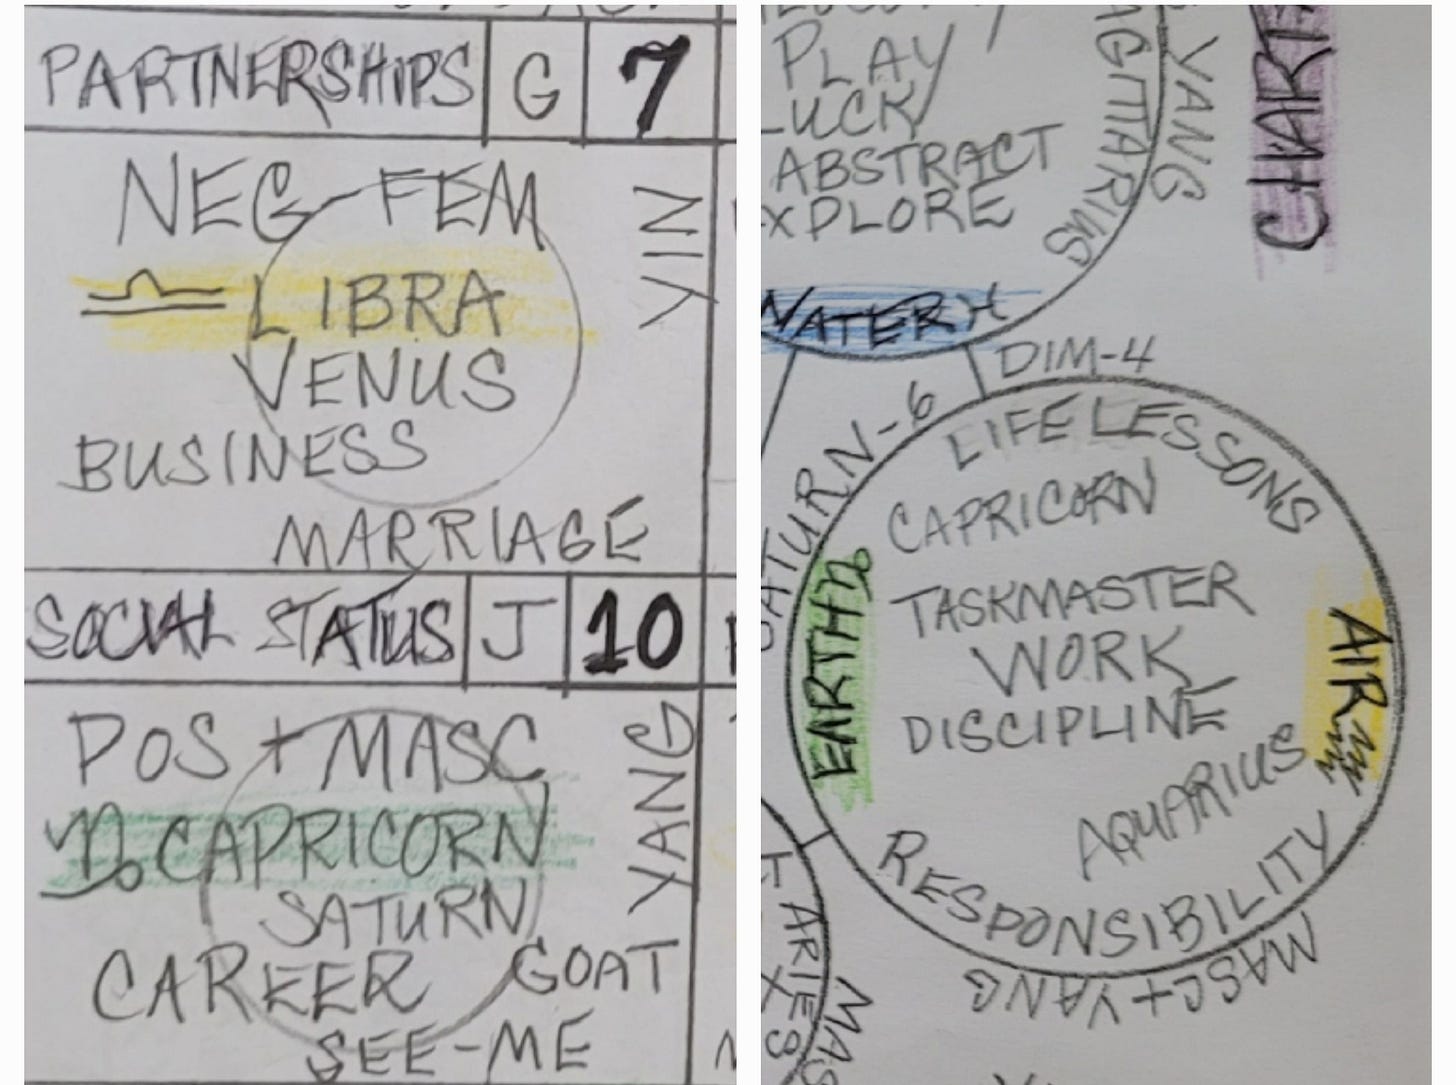 PARTNERSHIPS G 7
NEG - FEM
YIN
♎ LIBRA
VENUS
BUSINESS
MARRIAGE
SOCIAL STATUS J 10
POS + MASC
YANG
♑ CAPRICORN
SATURN
CAREER GOAT
SEE-ME
PLAY
LUCK
ABSTRACT
EXPLORE
YANG
WATER ♓
DIM-4
SATURN-6
LIFE LESSONS
CAPRICORN
EARTH ♑
TASKMASTER
WORK
DISCIPLINE
AIR ♒
AQUARIUS
RESPONSIBILITY
MASC + YANG
ARIES
MAS